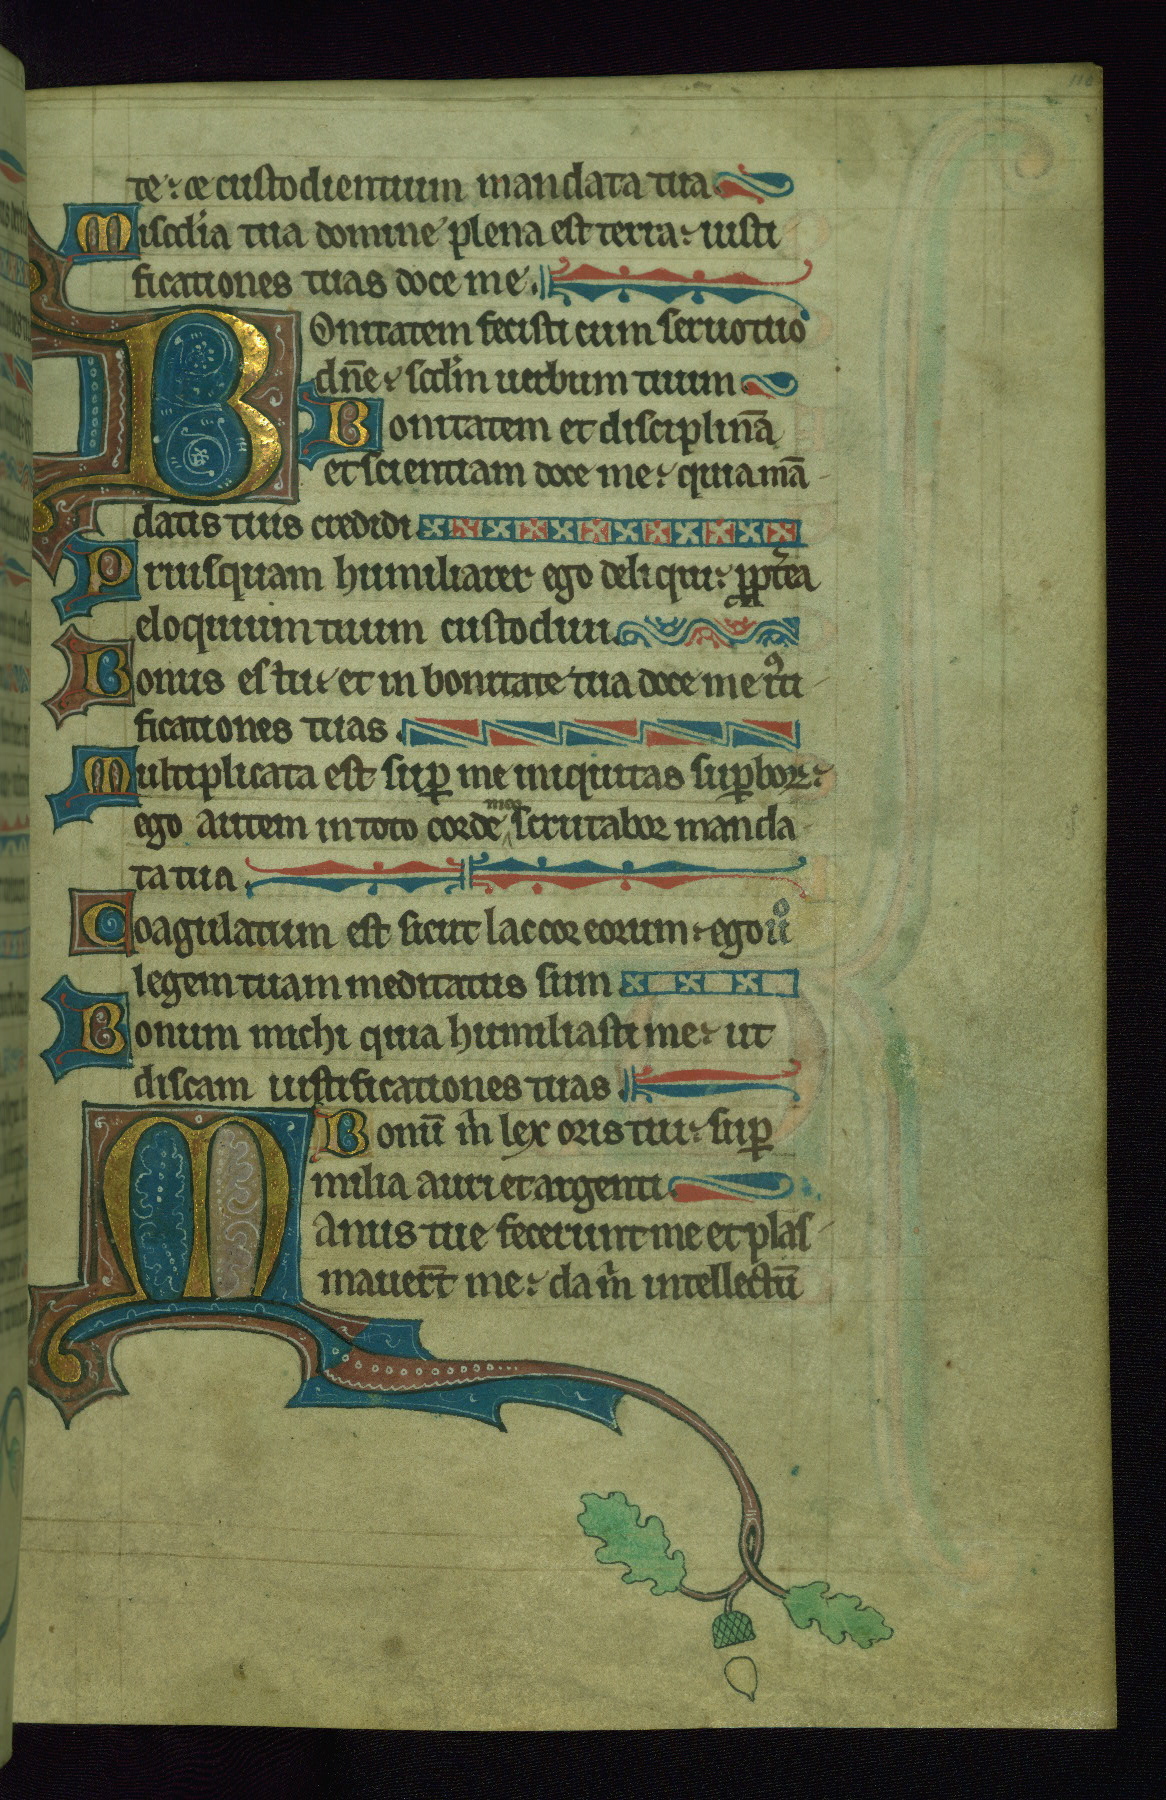 te: ⁊ custodientium mandata tua
Miscdia tua domine plena est terra: iusti
ficationes tuas doce me.
Bonitatem fecisti cum seruo tuo
dn̄e: scd̄m uerbum tuum
Bonitatem et disciplinā
et scientiam doce me: quia mā
datis tuis credidi
Priusquam humiliarer ego deliqui: ꝓpt̄ea
eloquium tuum custodiui.
Bonus es tu: et in bonitate tua doce me
ficationes tuas.
Multiplicata est suꝑ me iniquitas suꝑboꝝ:
ego autem in toto corde meo scrutabor manda
ta tua.
Coagulatum est sicut lac cor eorum: ego uͦ
legem tuam meditatus sum
Bonum michi quia humiliasti me: ut
discam iustificationes tuas.
Bonū m̄ lex oris tui: suꝑ
milia auri et argenti.
Manus tue fecerunt me et plas
mauer̄t me: da m̄ intellectū